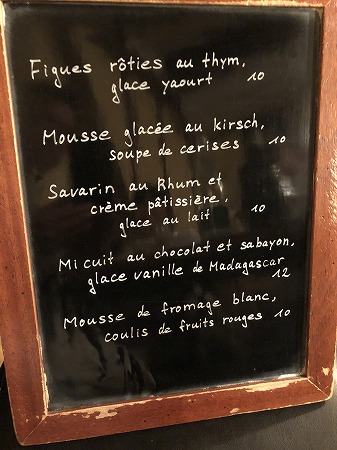 Figues rôties au thym,
glace yaourt 10
Mousse glacée au kirsch,
soupe de cerises 10
Savarin au Rhum et
crème pâtissière,
glace au lait 10
Mi cuit au chocolat et sabayon,
glace vanille de Madagascar
12
Mousse de fromage blanc,
coulis de fruits rouges 10